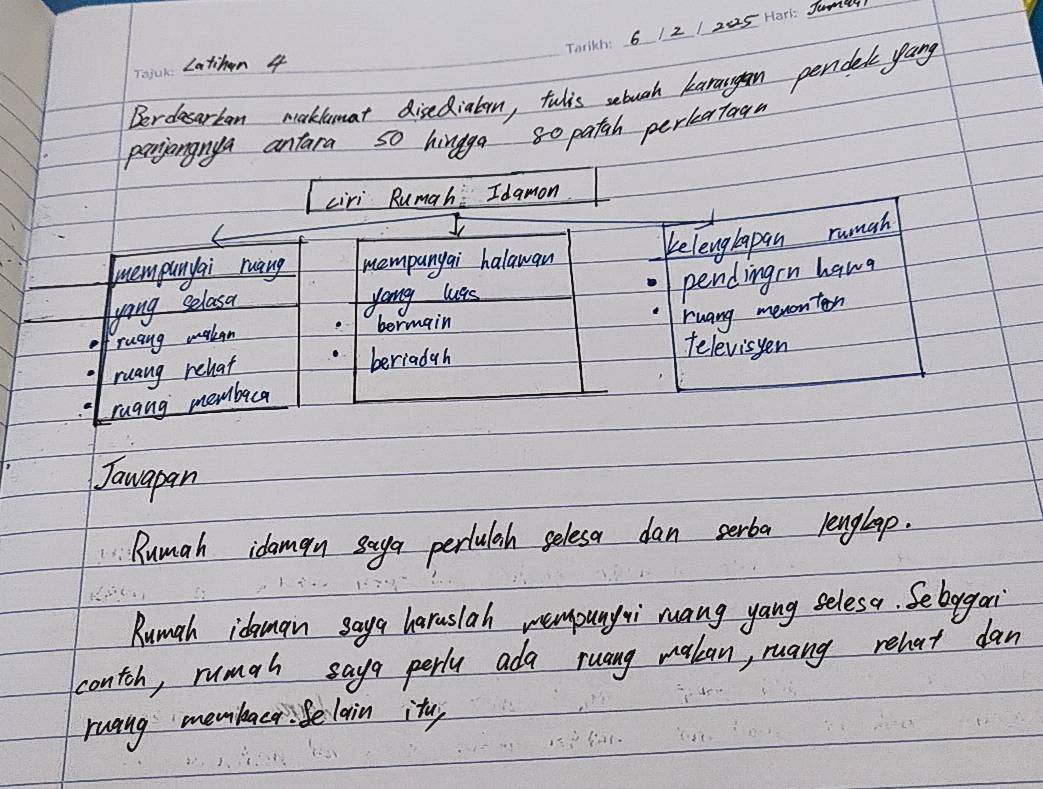 Tajuk: Latihan 4
Tarikh: 6 / 2 / 2025 Hari: Jumaat
Berdasarkan maklumat disediakan, tulis sebuah karangan pendek yang
panjangnya antara 50 hingga 80 patah perkataan
ciri Rumah Idaman
mempunyai ruang
yang selasa
• ruang makan
• ruang rehat
• ruang membaca
mempunyai halawan
yang luas
• bermain
• beriadah
kelengkapan rumah
• pendingin hawa
• ruang menonton
televisyen
Jawapan
Rumah idaman saya perlulah selesa dan serba lengkap.
Rumah idaman saya haruslah mempunyai ruang yang selesa. Sebagai
contoh, rumah saya perlu ada ruang makan, ruang rehat dan
ruang membaca. Selain itu,